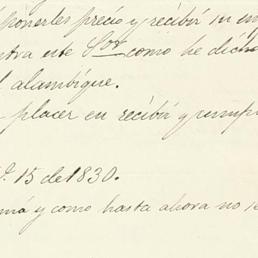 ponerles precio y recibir su im
ntra este Sor como he dich
l alambique.
placer en recibir y cumpl
o. 15 de 1830.
má y como hasta ahora no se